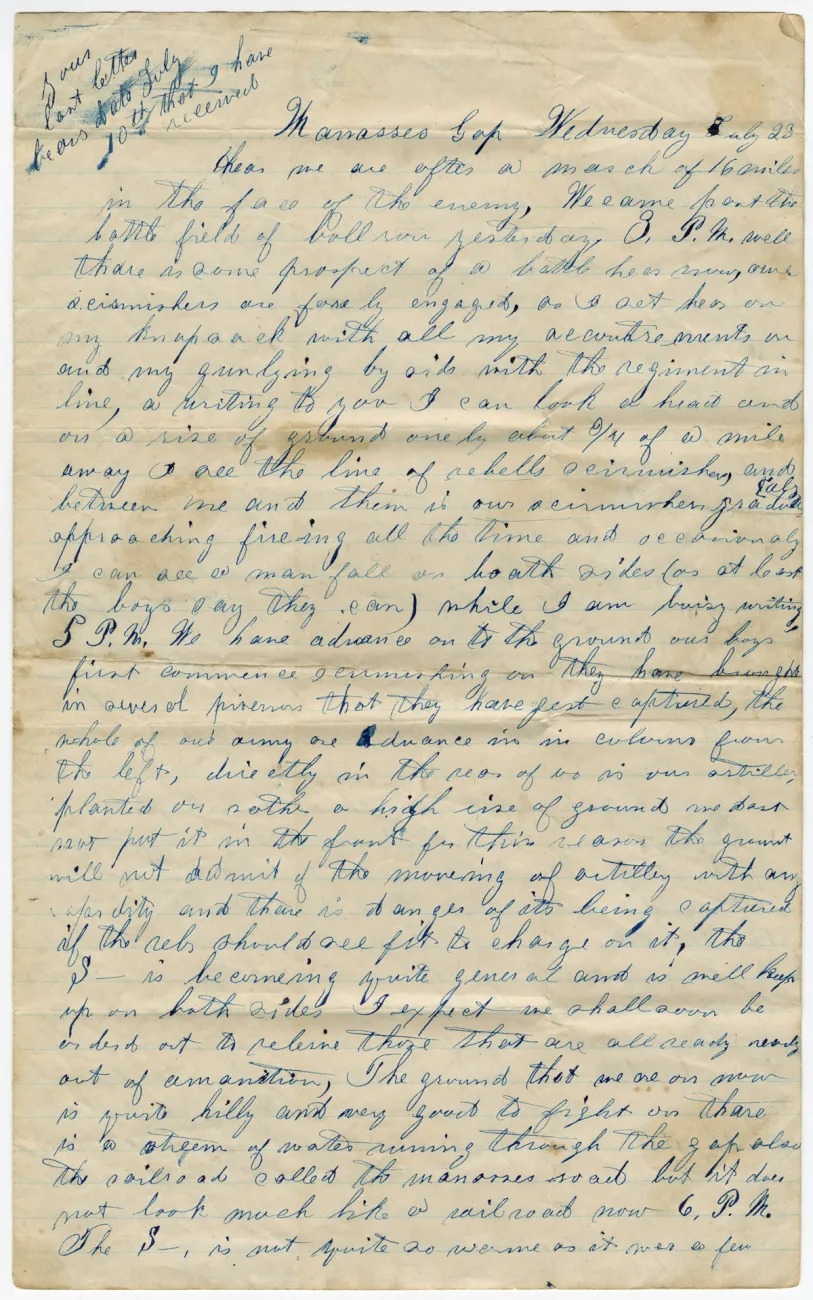 Your
last letter
bears date July
10th that I have
received
Manasses Gap Wednesday July 23
hear we are after a march of 16 miles
in the face of the enemy, We came past the
battle field of bull run yesterday, 3, P.M. well
thare is some prospect of a battle hear now, our
scirmishers are farely engaged, as I set hear on
my knapsack with all my accoutrements on
and my gun lying by side with the regiment in
line, a writing to you I can look a head and
on a rise of ground onely about 3/4 of a mile
away I see the line of rebells scirmishers, and
between me and them is our scirmishers gradualy
approaching fireing all the time and occasionaly
I can see a man fall on boath sides (or at least
the boys say they can) while I am buisy writing
5 P.M. We have advance on to the ground our boys
first commence scirmishing on they have brought
in several prisenors that they have jest captured, the
whole of our army are advance in in colums from
the left, directly in the rear of us is our artillery
planted on rather a high rise of ground we dast
not put it in the front for this reason the ground
will not admit of the moveing of artilley with any
rapidity and thare is danger of its being captured
if the rebs should see fit to charge on it, the
S— is becomeing quite general and is well keep
up on both sides I expect we shall soon be
orderd out to releive those that are allready nearly
out of amanition, The ground that we are on now
is quite hilly and very good to fight on thare
is a streem of water runing through the gap also
the railroad called the manasses road but it does
not look much like a railroad now 6, P.M.
The S—, is not quite so warme as it was a few